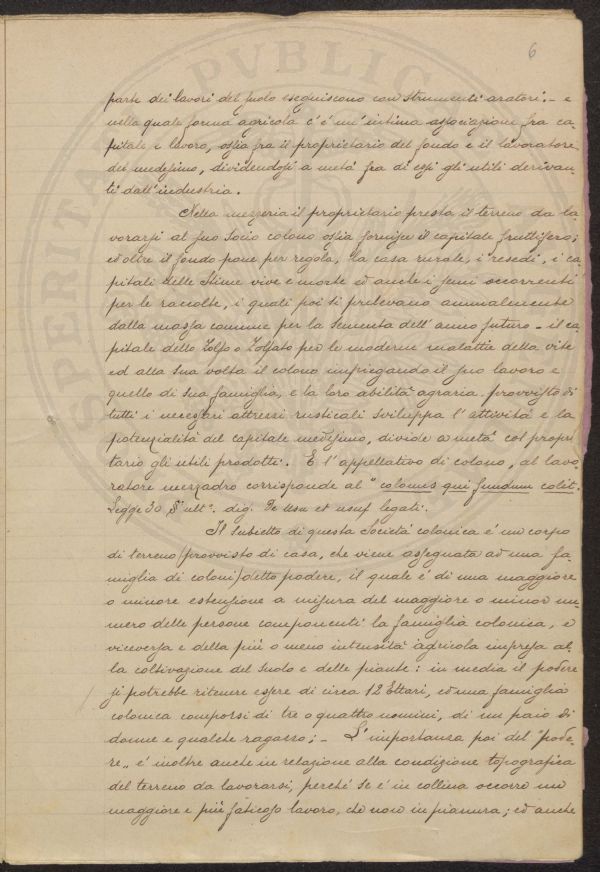 6
parte dei lavori del suolo eseguiscono con strumenti aratori. - e
nella quale forma agricola c'è un'intima associazione fra ca-
pitale e lavoro, ossia fra il proprietario del fondo e il lavoratore
del medesimo, dividendosi a metà fra di essi gli utili derivan-
ti dall'industria.
Nella mezzeria il proprietario presta il terreno da la-
vorarsi al suo Socio colono ossia fornisce il capitale fruttifero;
ed oltre il fondo pone per regola, la casa rurale, i resedi, i ca-
pitali delle Stime vive e morte ed anche i semi occorrenti
per le raccolte, i quali poi si prelevano annualmente
dalla massa comune per la Sementa dell'anno futuro - il ca-
pitale dello Zolfo o Zolfato per le moderne malattie della vite
ed alla sua volta il colono impiegando il suo lavoro e
quello di sua famiglia, e la loro abilità agraria, provvisto di
tutti i necessari attrezzi rusticali sviluppa l'attività e la
potenzialità del capitale medesimo, divide a metà col proprie-
tario gli utili prodotti. E l'appellativo di colono, al lavo-
ratore mezzadro corrisponde al "colonus qui fundum colit.
Legge 30 § ult°. dig. De usu et usuf legati.
Il subietto di questa Società colonica è un corpo
di terreno (provvisto di casa, che viene assegnata ad una fa-
miglia di coloni) detto podere, il quale è di una maggiore
o minore estensione a misura del maggiore o minor nu-
mero delle persone componenti la famiglia colonica, e
viceversa e della più o meno intensità agricola impressa al-
la coltivazione del suolo e delle piante: in media il podere
si potrebbe ritenere essere di circa 12 Ettari, ed una famiglia
colonica comporsi di tre o quattro uomini, di un paio di
donne e qualche ragazzo; - L'importanza poi del "pode-
re" è inoltre anche in relazione alla condizione topografica
del terreno da lavorarsi, perché se è in collina occorre un
maggiore e più faticoso lavoro, che non in pianura; ed anche
PVBLICA